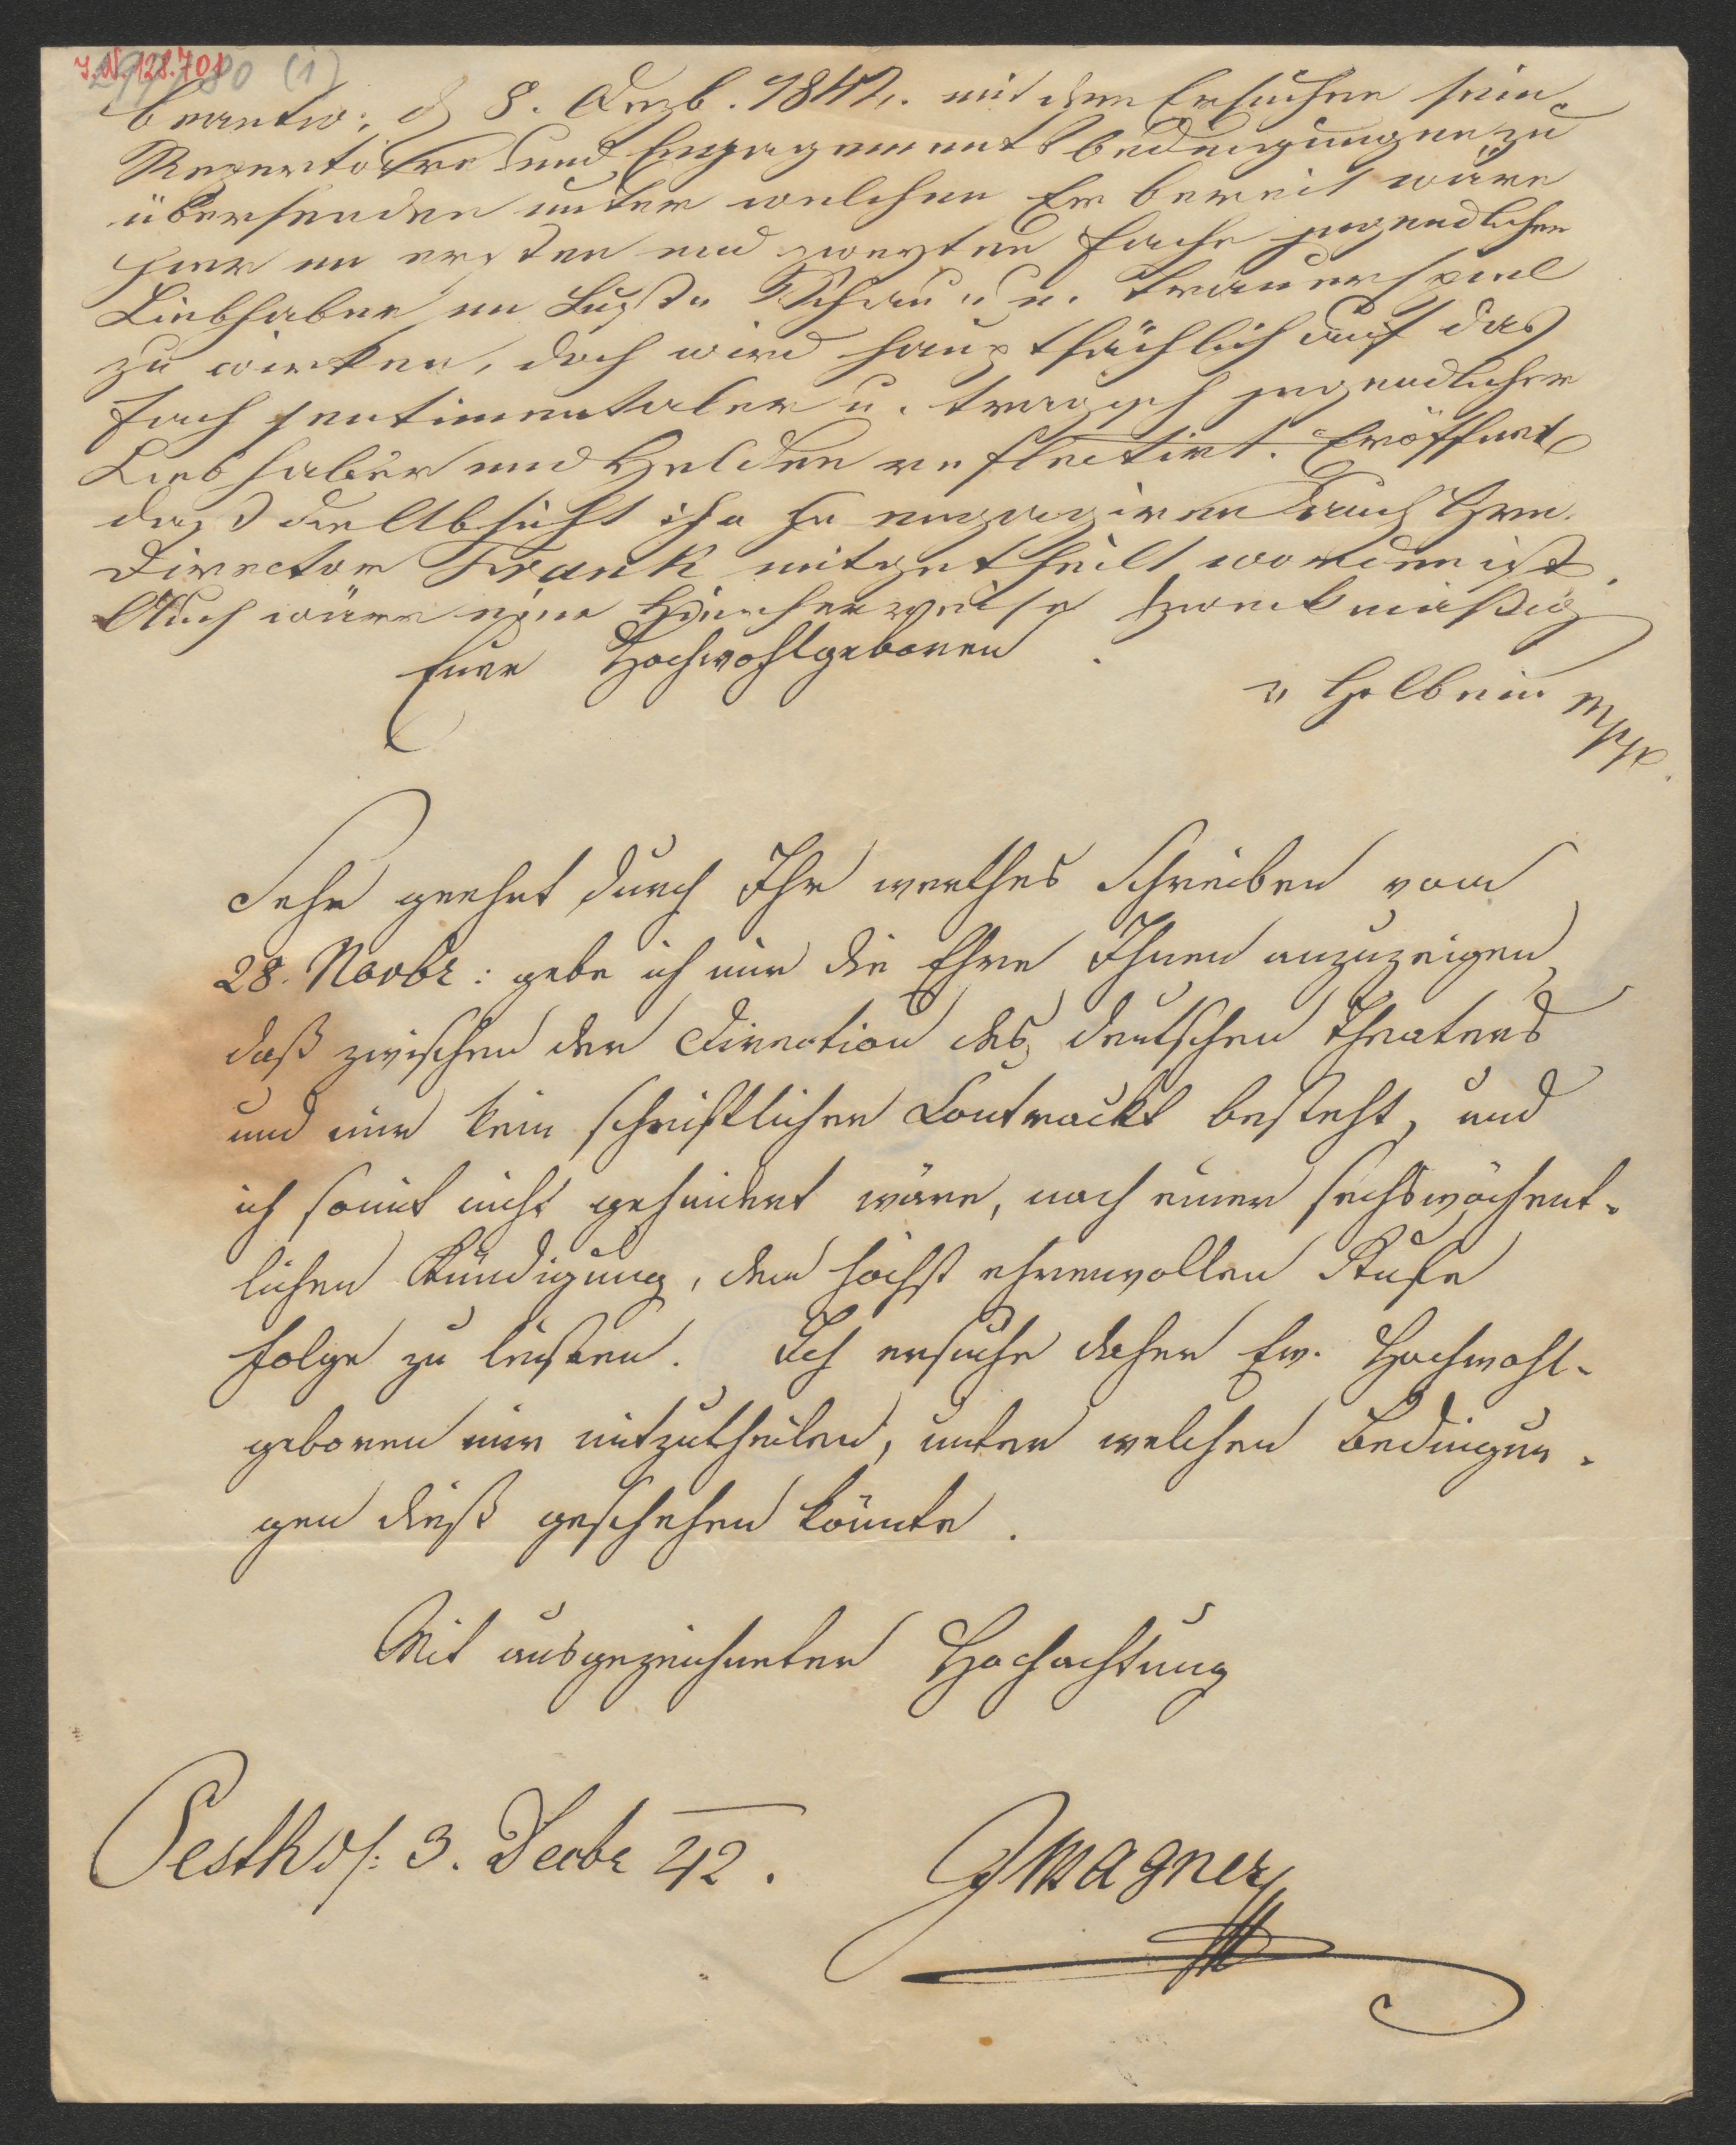 J.N. 128.701
(1)
beantw: d 8. Dezb. 1842. mit dem Ersuchen sein
Repertoire und Engagementsbedingungen zu
übersenden unter welchen Er bereit wäre
hier im ersten und zweyten Fache jugendlicher
Liebhaber im Lust- Schau- u. Trauerspiel
zu wirken, doch wird hauptsächlich auf das
Fach sentimentaler u. tragisch jugendlicher
Liebhaber und Helden reflectirt. Eröffnet
daß die Absicht ihn zu engagiren auch Hrn.
Director Frank mitgetheilt worden ist.
Auch wäre eine Hieherreise zweckmäßig
Euer Hochwohlgeboren.
v Holbein mpp.
Sehr geehrt durch Ihr werthes Schreiben vom
28. Novbr: gebe ich mir die Ehre Ihnen anzuzeigen,
daß zwischen der Direction des deutschen Theaters
und mir kein schriftlicher Contrackt besteht, und
ich somit nicht gehindert wäre, nach einer sechswöchent-
lichen Kündigung, dem höchst ehrenvollen Rufe
Folge zu leisten. Ich ersuche daher Ew. Hochwohl-
geboren mir mitzutheilen, unter welchen Bedingun-
gen dieß geschehen könnte.
Mit ausgezeichneter Hochachtung
Pesth d: 3. Decbr 42.
JWagner